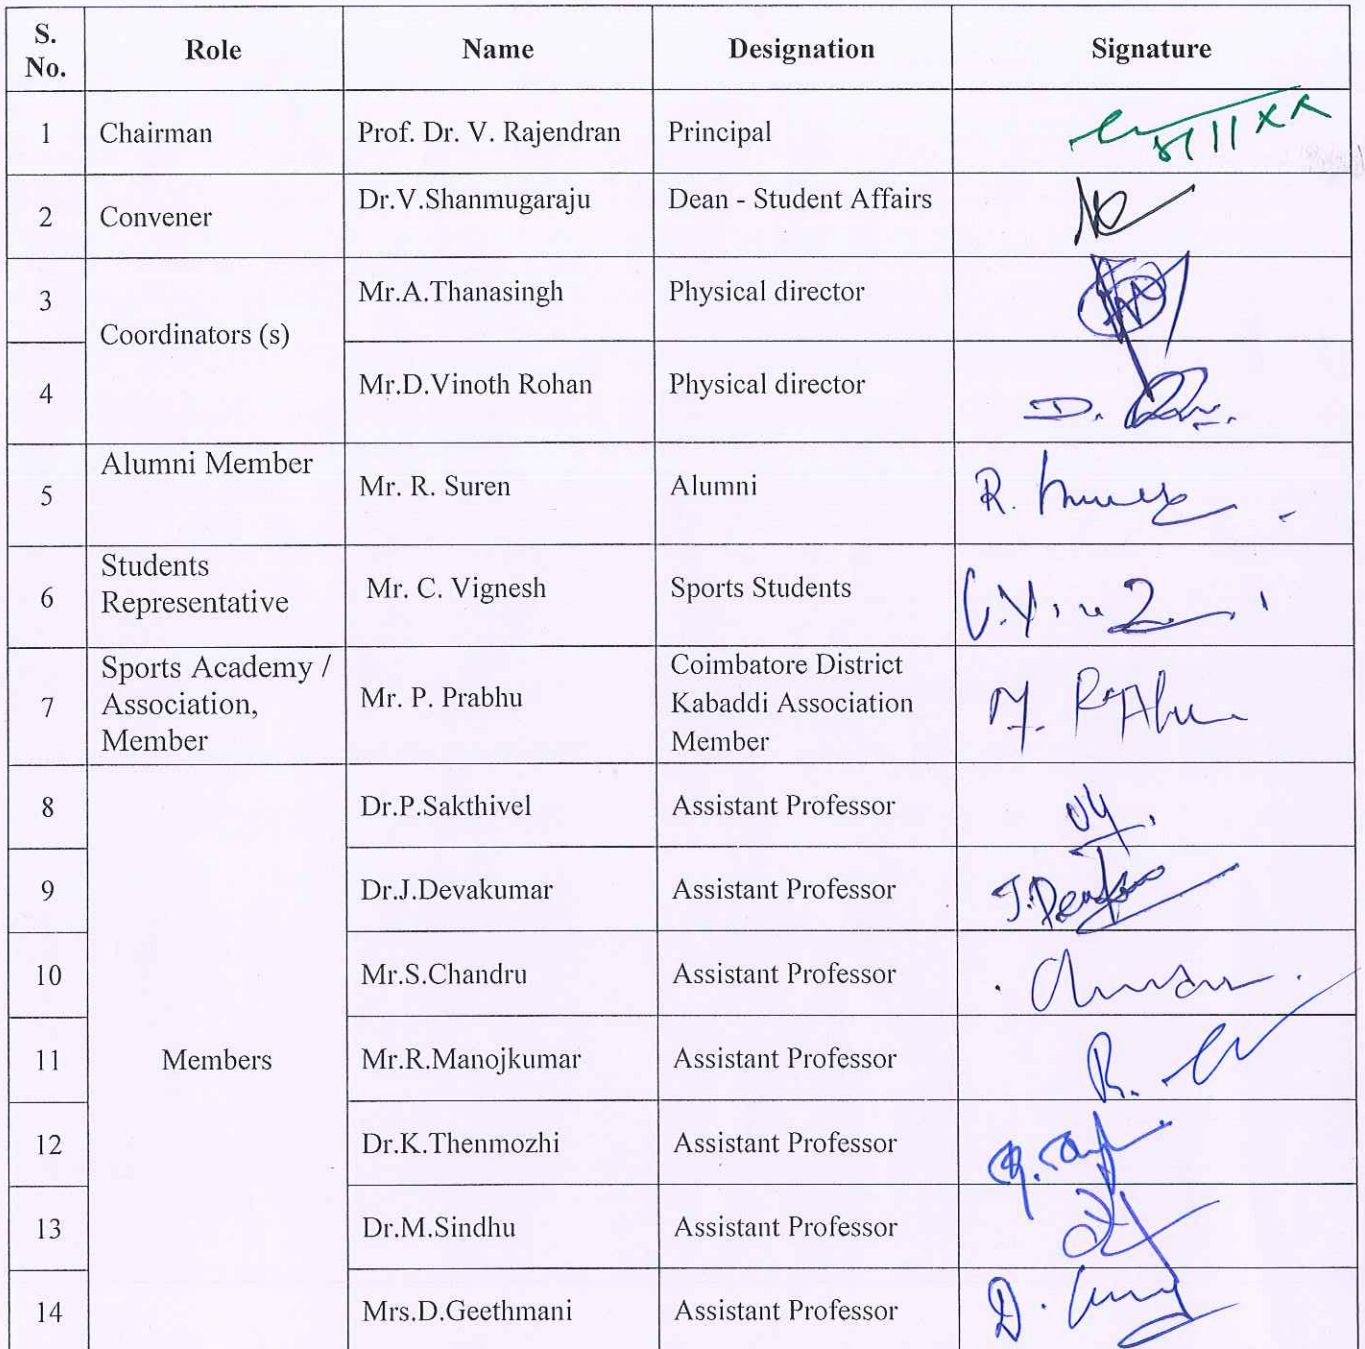 S. No. Role Name Designation Signature
1 Chairman Prof. Dr. V. Rajendran Principal
2 Convener Dr.V.Shanmugaraju Dean - Student Affairs
3 Coordinators (s) Mr.A.Thanasingh Physical director
4 Mr.D.Vinoth Rohan Physical director D.
5 Alumni Member Mr. R. Suren Alumni R.
6 Students Representative Mr. C. Vignesh Sports Students
7 Sports Academy / Association, Member Mr. P. Prabhu Coimbatore District Kabaddi Association Member
8 Members Dr.P.Sakthivel Assistant Professor
9 Dr.J.Devakumar Assistant Professor
10 Mr.S.Chandru Assistant Professor
11 Mr.R.Manojkumar Assistant Professor R.
12 Dr.K.Thenmozhi Assistant Professor
13 Dr.M.Sindhu Assistant Professor
14 Mrs.D.Geethmani Assistant Professor D.